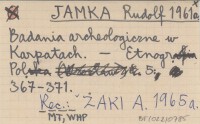 x JAMKA Rudolf 1961a
Badania archeologiczne w
Karpatach. — Etnografia
Polska 5,
367-371.
Rec.: ŻAKI A. 1965a.
MT, WHP